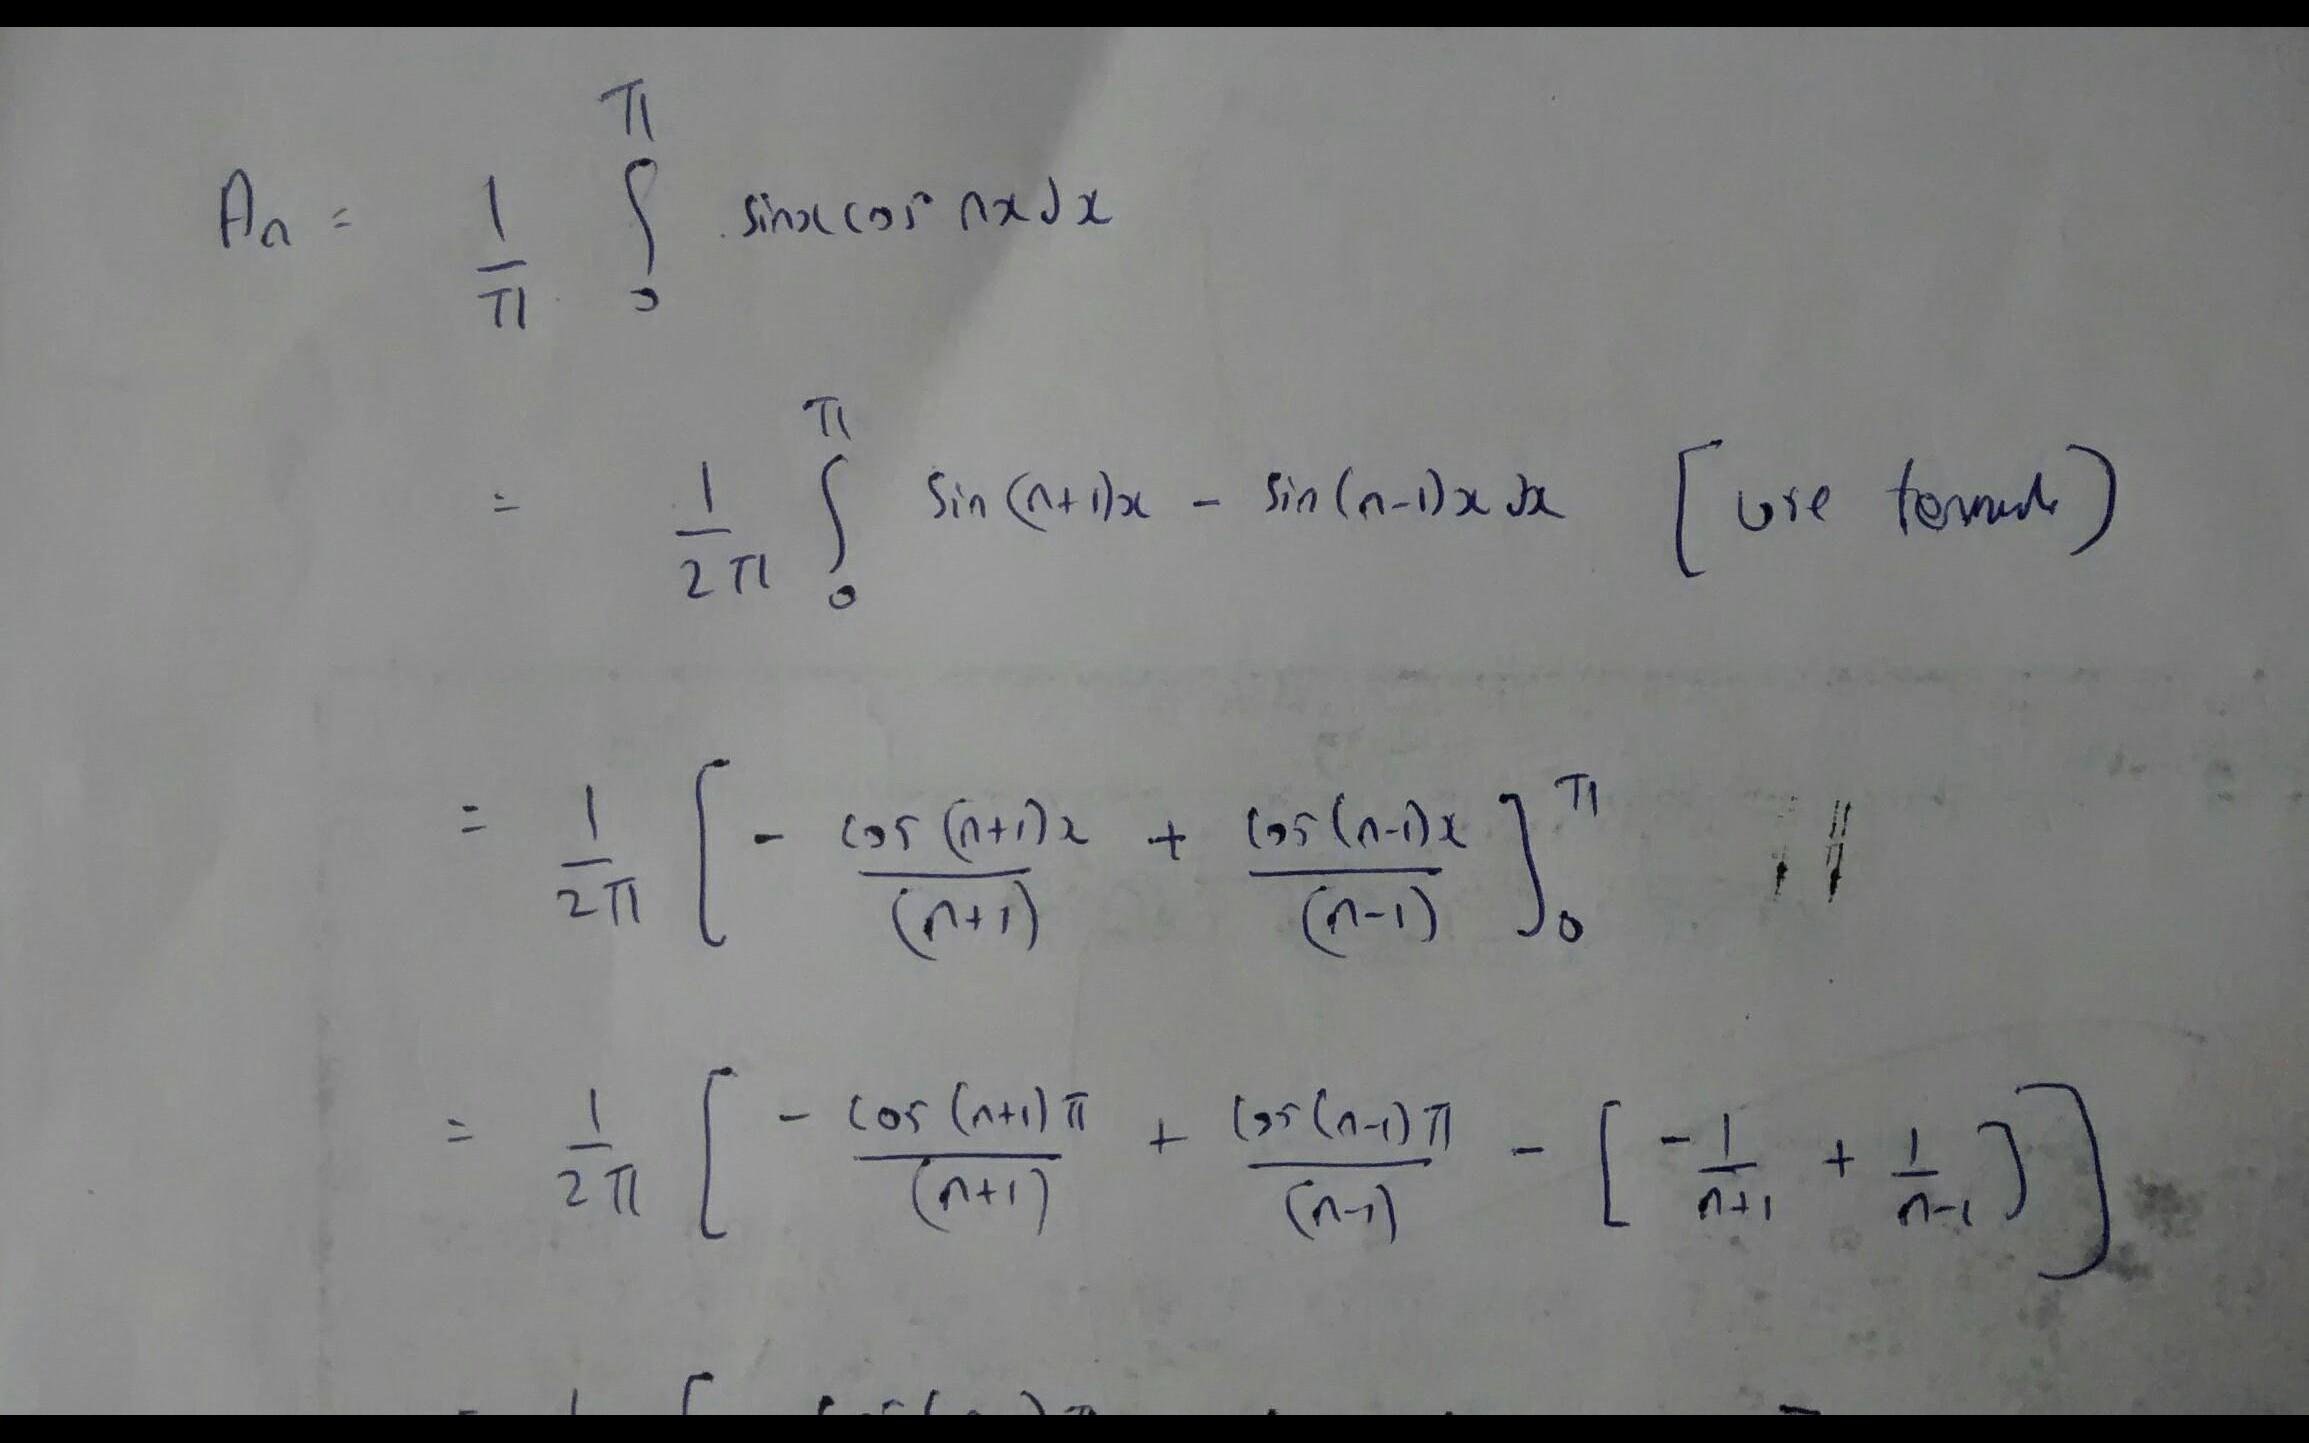 An = 1/π ∫₀^π sinx cos nx dx
= 1/2π ∫₀^π sin(n+1)x - sin(n-1)x dx [use formula)
= 1/2π [ - cos(n+1)x/(n+1) + cos(n-1)x/(n-1) ]₀^π
= 1/2π [ - cos(n+1)π/(n+1) + cos(n-1)π/(n-1) - [ -1/n+1 + 1/n-1 ] ]